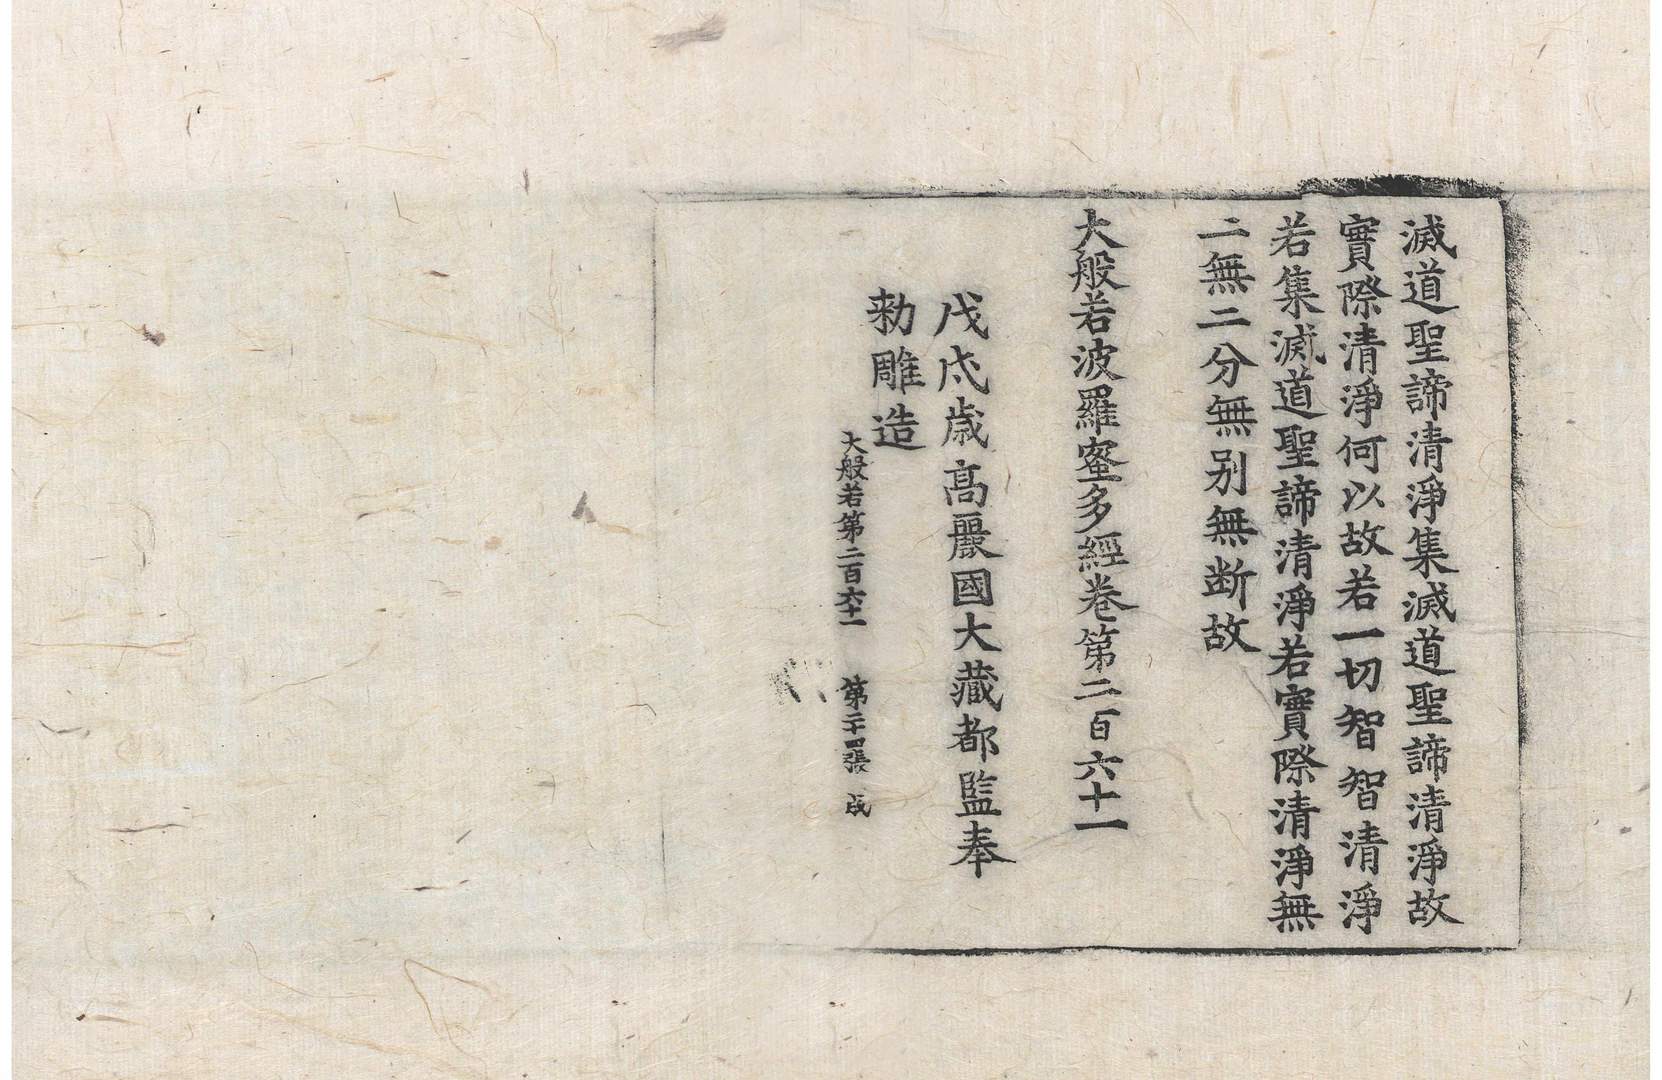 滅道聖諦清淨集滅道聖諦清淨故
實際清淨何以故若一切智智清淨
若集滅道聖諦清淨若實際清淨無
二無二分無别無断故
大般若波羅蜜多經卷第二百六十一
戊戌歳高麗國大藏都監奉
勅雕造
大般若第二百六十一 第二十四張